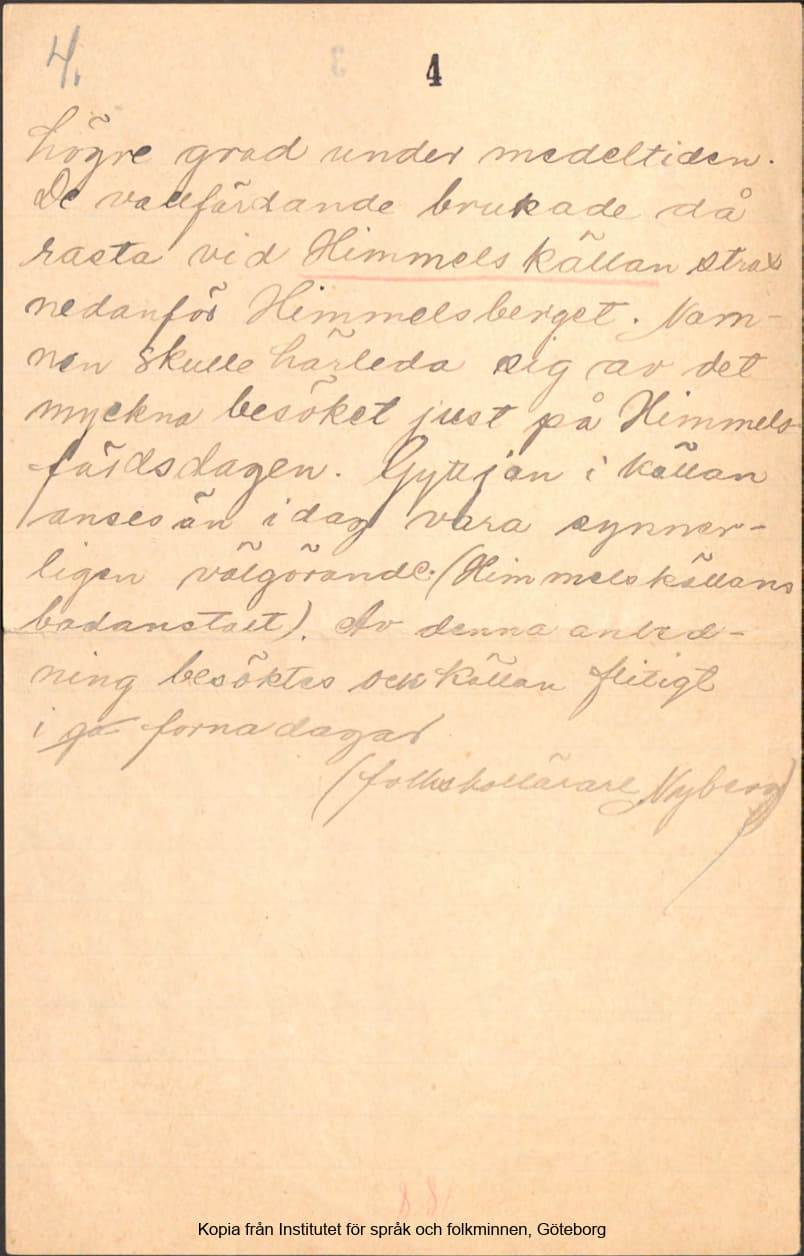 4.
4
högre grad under medeltiden.
De vallfärdande brukade då
rasta vid Himmelskällan strax
nedanför Himmelsberget. Nam-
nen skulle härleda sig av det
myckna besöket just på Himmels-
färdsdagen. Gyttjan i källan
anses än idag vara synner-
ligen välgörande. (Himmelskällans
badanstalt). Av denna anled-
ning besöktes ock källan flitigt
i forna dagar
(folkskollärare Nyberg)
Kopia från Institutet för språk och folkminnen, Göteborg